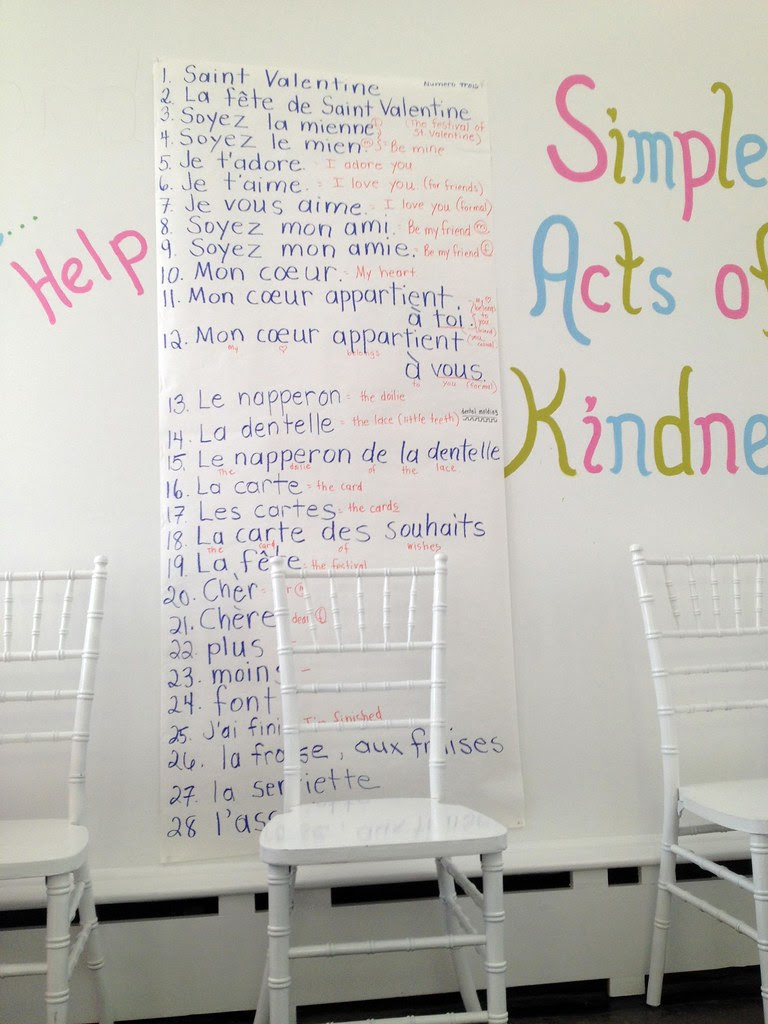 Numero Trois
1. Saint Valentine
2. La fête de Saint Valentine
3. Soyez la mienne (The festival of
St. Valentine)
4. Soyez le mien = Be mine
5. Je t'adore. - I adore you
6. Je t'aime. = I love you (for friends)
7. Je vous aime. = I love you (formal)
8. Soyez mon ami. = Be my friend (m)
9. Soyez mon amie. = Be my friend (f)
10. Mon cœur. = My heart
11. Mon cœur appartient
à toi.
my ♡ belongs to you
12. Mon cœur appartient
my ♡ belongs
à vous.
to you (formal)
13. Le napperon = the doilie
14. La dentelle = the lace (little teeth) dental molding
15. Le napperon de la dentelle
the doilie of the lace
16. La carte = the card
17. Les cartes = the cards
18. La carte des souhaits
the card of wishes
19. La fête = the festival
20. Chèr
21. Chère dear (f)
22. plus
23. moins -
24. font
25. J'ai fini I'm finished
26. la fraise, aux fraises
27. la serviette
28
Help
Simple
Acts of